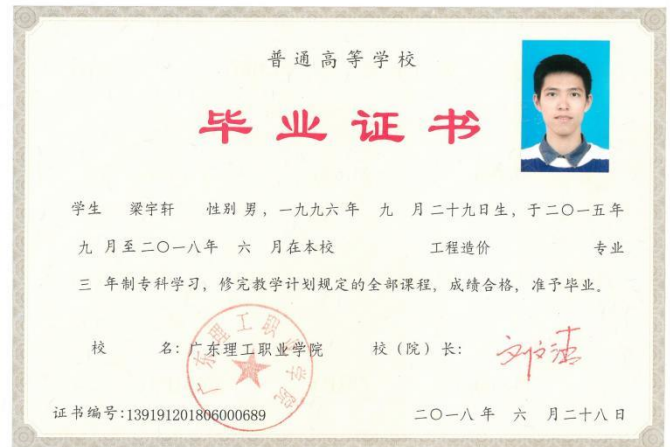 普通高等学校
毕业证书
学生 梁宇轩 性别男，一九九六年 九 月二十九日生，于二〇一五年
九 月至二〇一八年 六 月在本校 工程造价 专业
三 年制专科学习，修完教学计划规定的全部课程，成绩合格，准予毕业。
校 名：广东理工职业学院 校（院）长：
广东理工职业学院
证书编号:139191201806000689 二〇一八年 六 月二十八日